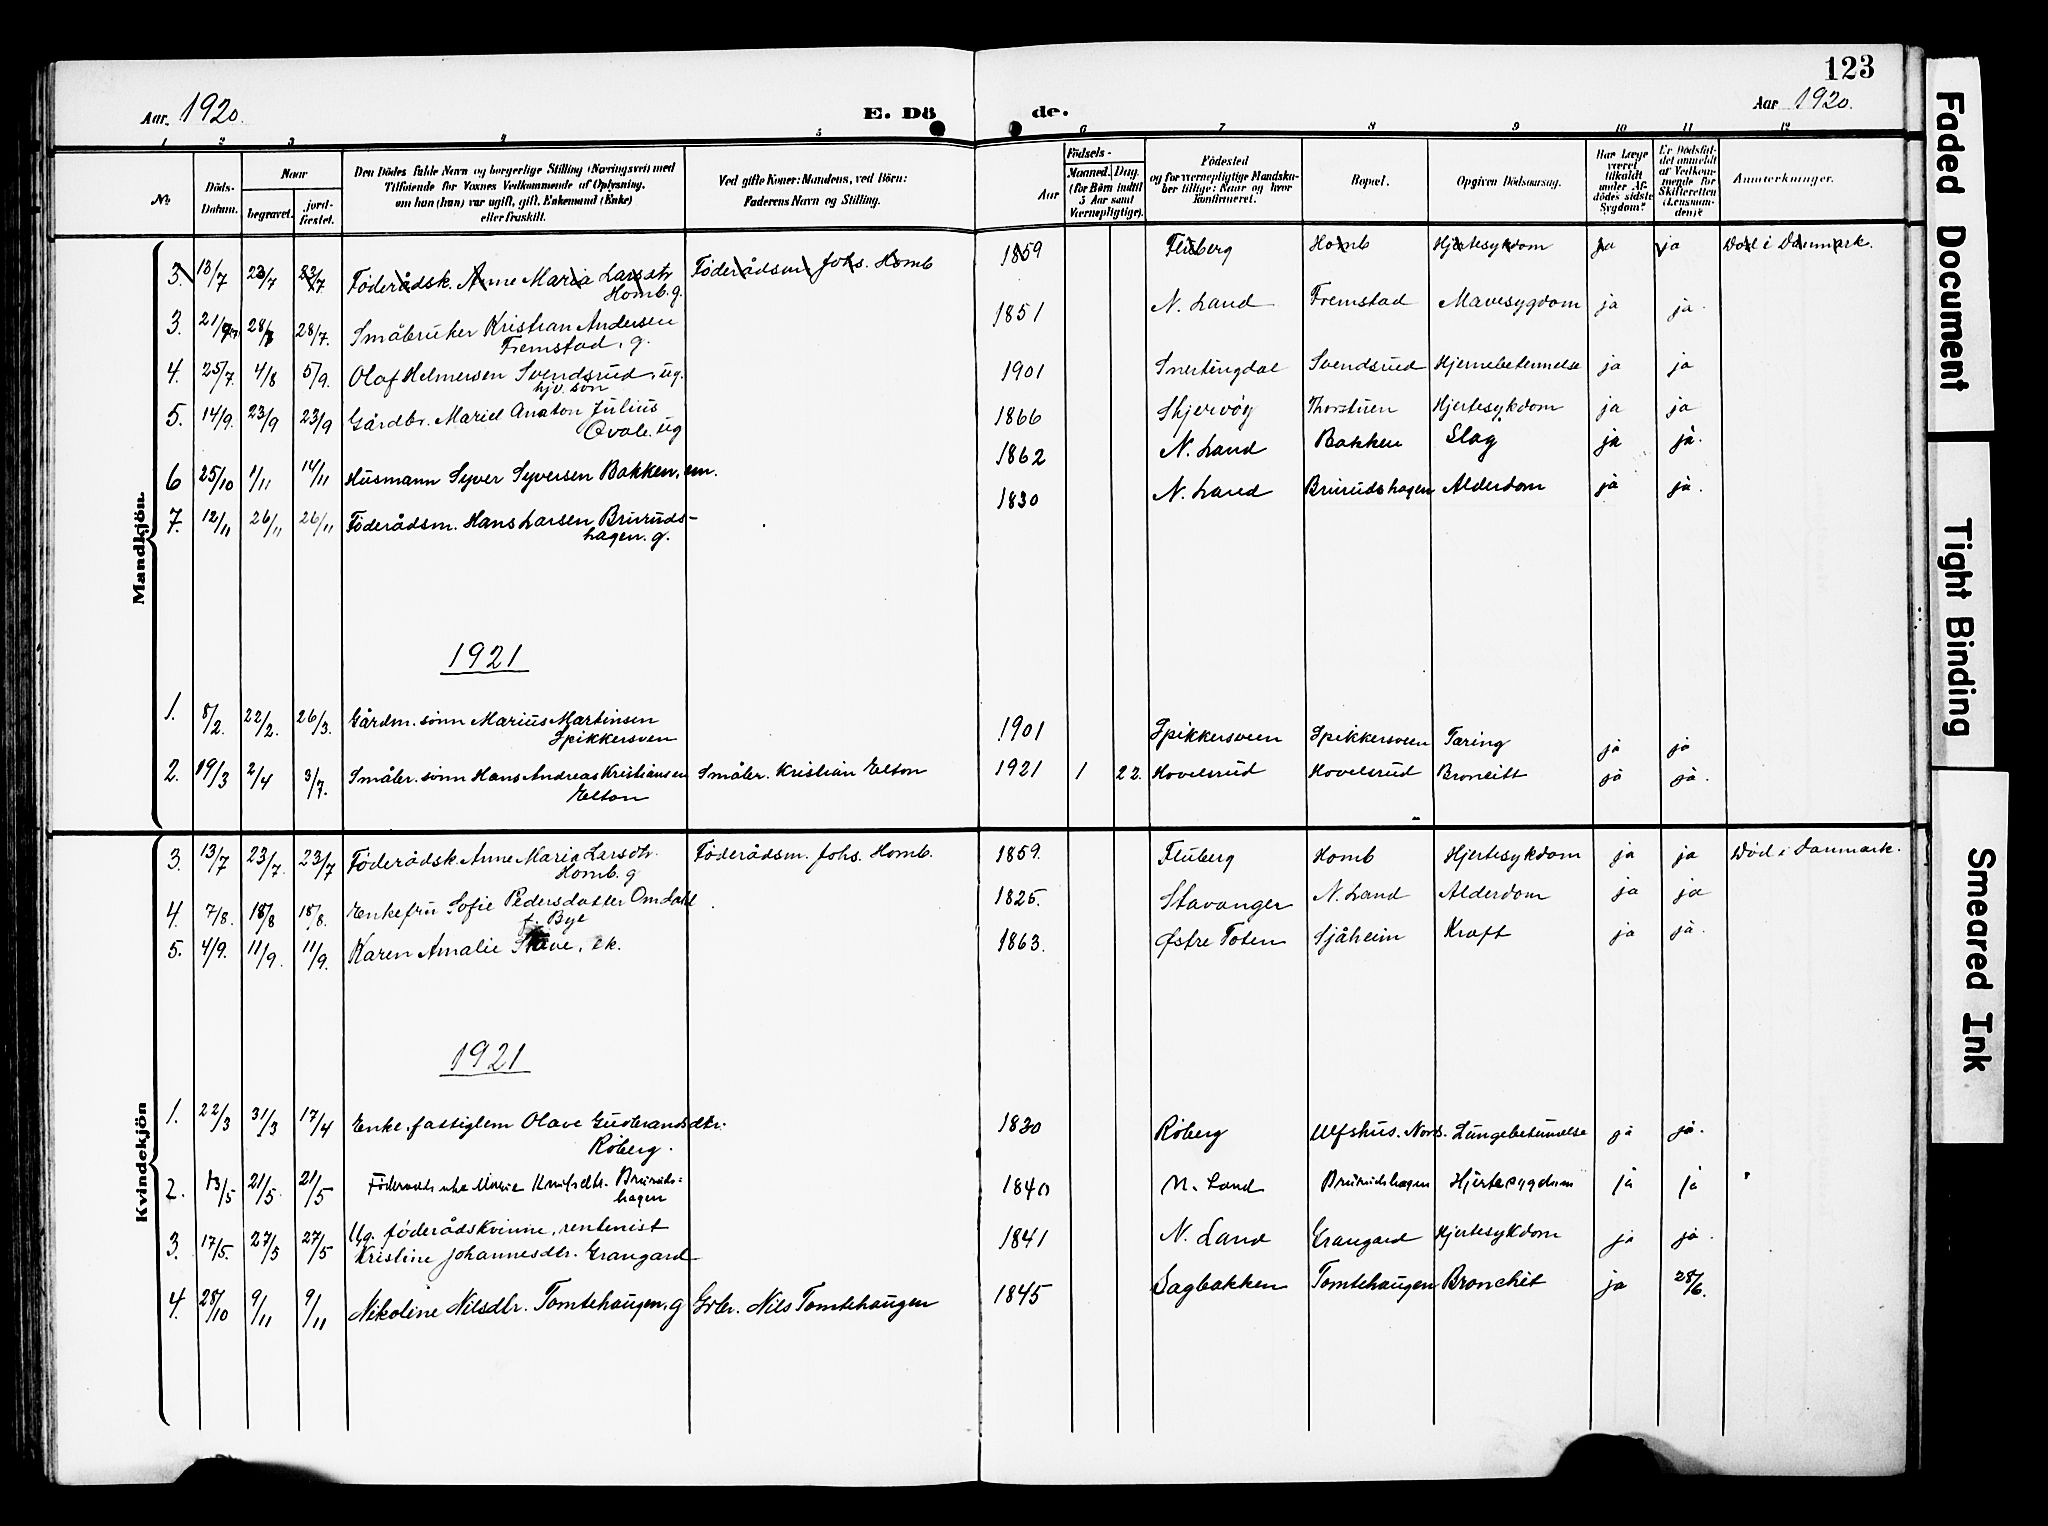 123
Aar. 1920.
E. Dö
de.
Aar 1920.
1 2 3 4 5 6 7 8 9 10 11 12
No.
Döds-
Datum.
Naar
begravet.
jord-
fæstet.
Den Dödes fulde Navn og borgerlige Stilling (Næringsvei) med
Tilföiende for Voxnes Vedkommende af Oplysning,
om han (hun) var ugift, gift, Enkemand (Enke)
eller fraskilt.
Ved gifte Koner: Mandens, ved Börn:
Faderens Navn og Stilling.
Födsels-
Aar
Maaned. Dag.
(for Börn indtil
5 Aar samt
Værnepligtige).
Födested
og for værnepligtige Mandska-
ber tillige: Naar og hvor
konfirmeret.
Bopæl.
Opgiven Dödsaarsag.
Har Læge
været
tilkaldt
under Af-
dödes sidste
Sygdom?
Er Dödsfal-
det anmeldt
af Vedkom-
mende for
Skifteretten
(Lensman-
den)?
Anmærkninger.
Mandkjön.
3. 13/7 23/7 23/7 Föderådsk. Anne Maria Larsdtr. Föderådsm. Johs. Homb 1859 Fluberg Homb Hjertesykdom ja ja Död i Danmark.
Homb. g.
3. 21/7 28/7 28/7. Småbruker Kristian Andersen 1851 N. Land Fremstad Mavesygdom ja ja.
Fremstad, g.
4. 25/7. 4/8 5/9. Olaf Helmersen Svendsrud, ug. 1901 Snertingdal Svendsrud Hjernebetennelse ja ja
hjv. søn
5. 14/9. 23/9 23/9 Gårdbr. Mariel Anaton Julius 1866 Skjervøy Thorstuen Hjertesykdom ja ja
Qvale. ug
6 25/10 1/11 14/11 Husmann Syver Syversen Bakken, em. 1862 N. Land Bakken Slag ja ja.
7. 12/11 26/11 26/11 Föderådsm. Hans Larsen Bruruds- 1830 N. Land Brurudshagen Alderdom ja ja.
hagen. g.
1921
1. 8/2. 22/2. 26/3. Gårdm. sønn Marius Martinsen 1901 Spikkersveen Spikkersveen Tæring ja ja
Spikkersven
2. 19/3 2/4 3/7. Småbr. sønn Hans Andreas Kristiansen Småbr. Kristian Elton 1921 1 22. Hovelsrud Hovelsrud Bronkitt ja ja.
Elton
Kvindekjön
3. 13/7 23/7. 23/7 Föderådsk. Anne Maria Larsdtr. Föderådsm. Johs. Homb. 1859. Fluberg Homb Hjertesykdom ja ja Död i Danmark.
Homb. g
4. 7/8. 18/8 18/8. Enkefru Sofie Pedersdatter Omdahl 1825. Stavanger N. Land Alderdom ja ja
f. Bye
5. 4/9. 11/9. 11/9. Karen Amalie Stave, ek. 1863. Østre Toten Sjåheim Kræft ja ja.
1921
1. 22/3 31/3 17/4 Enke, fattiglem Olave Gudbrandsdtr. 1830 Røberg Ulfshus. Nords. Lungebetennelse ja ja.
Røberg.
2. 13/5 21/5. 21/5 Föderaads Marie Knutsdtr. Bruruds- 1840 N. Land Brurudshagen Hjertesygdom ja ja
hagen
3. 17/5. 27/5 27/5 Ug. föderådskvinne, rentenist 1841 N. Land Grangard Hjertesykdom ja ja.
Kristine Johannesdtr. Grangard
4. 28/10 9/11 9/11 Nikoline Nilsdtr. Tomtehaugen, g Grbr. Nils Tomtehaugen 1845 Sagbakken Tomtehaugen Bronchit ja 28/6.
Faded Document
Tight Binding
Smeared Ink